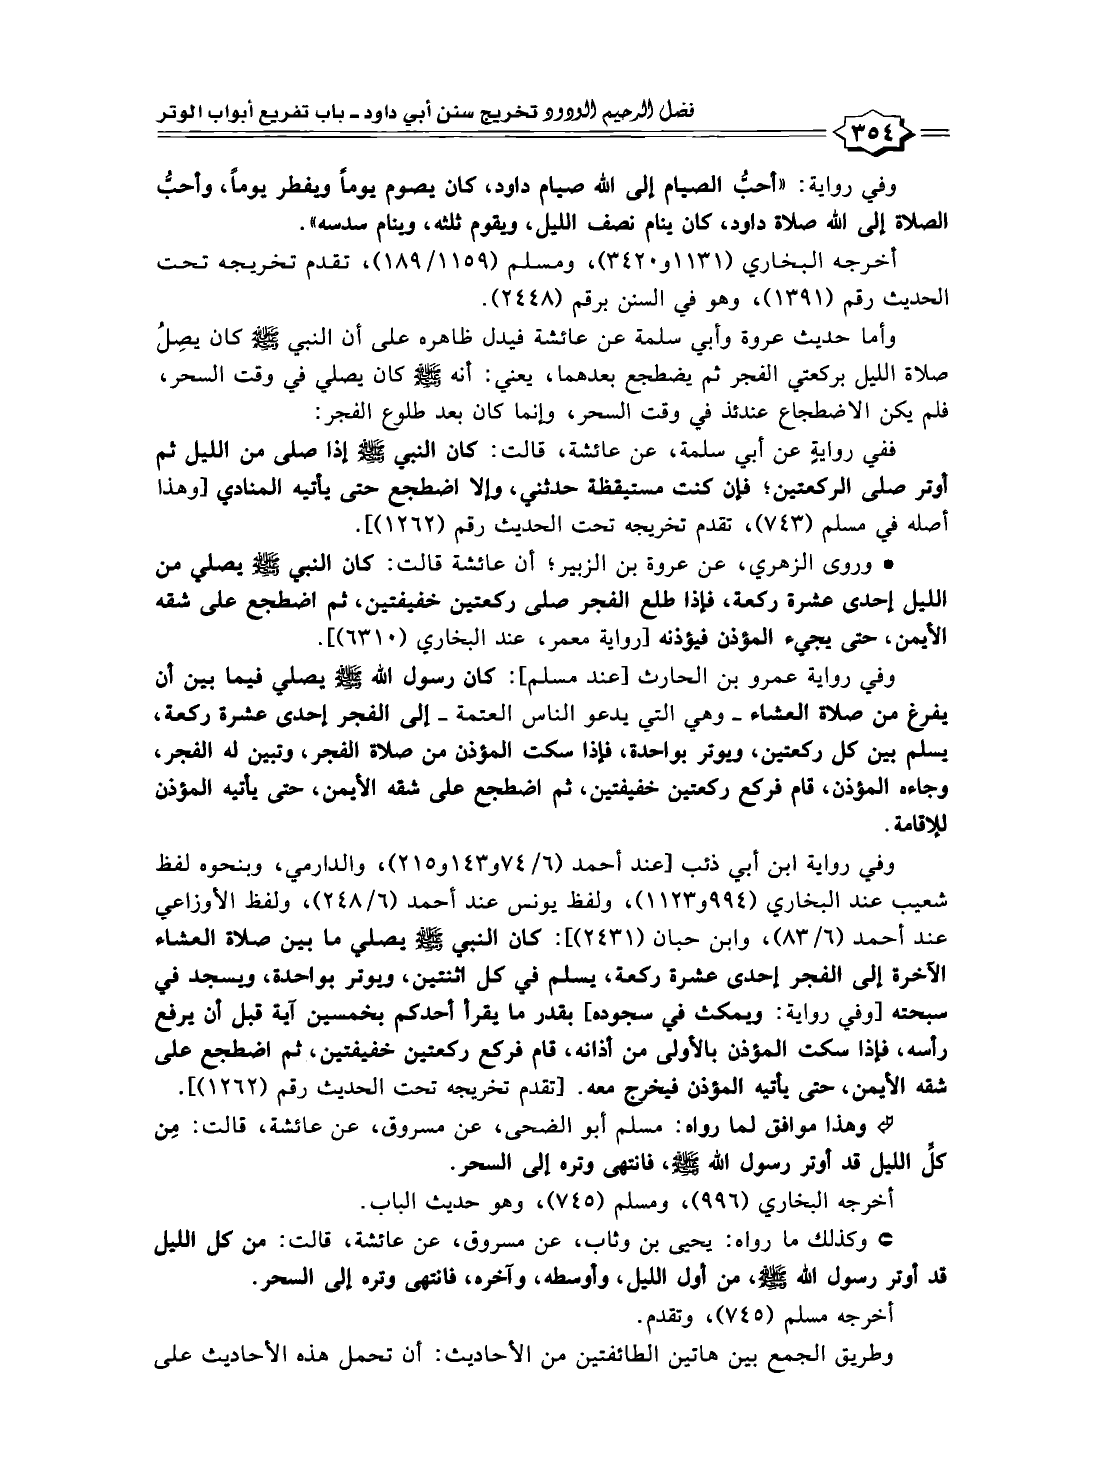 فضل الرحيم الودود تخريج سنن أبي داود ـ باب تفريع أبواب الوتر
٣٥٤
وفي رواية: «أحبُّ الصيام إلى الله صيام داود، كان يصوم يوماً ويفطر يوماً، وأحبُّ
الصلاة إلى الله صلاة داود، كان ينام نصف الليل، ويقوم ثلثه، وينام سدسه».
أخرجه البخاري (١١٣١و٣٤٢٠)، ومسلم (١٨٩/١١٥٩)، تقدم تخريجه تحت
الحديث رقم (١٣٩١)، وهو في السنن برقم (٢٤٤٨).
وأما حديث عروة وأبي سلمة عن عائشة فيدل ظاهره على أن النبي ﷺ كان يصِلُ
صلاة الليل بركعتي الفجر ثم يضطجع بعدهما، يعني: أنه ﷺ كان يصلي في وقت السحر،
فلم يكن الاضطجاع عندئذ في وقت السحر، وإنما كان بعد طلوع الفجر:
ففي روايةٍ عن أبي سلمة، عن عائشة، قالت: كان النبي ﷺ إذا صلى من الليل ثم
أوتر صلى الركعتين؛ فإن كنت مستيقظة حدثني، وإلا اضطجع حتى يأتيه المنادي [وهذا
أصله في مسلم (٧٤٣)، تقدم تخريجه تحت الحديث رقم (١٢٦٢)].
• وروى الزهري، عن عروة بن الزبير؛ أن عائشة قالت: كان النبي ﷺ يصلي من
الليل إحدى عشرة ركعة، فإذا طلع الفجر صلى ركعتين خفيفتين، ثم اضطجع على شقه
الأيمن، حتى يجيء المؤذن فيؤذنه [رواية معمر، عند البخاري (٦٣١٠)].
وفي رواية عمرو بن الحارث [عند مسلم]: كان رسول الله ﷺ يصلي فيما بين أن
يفرغ من صلاة العشاء ـ وهي التي يدعو الناس العتمة ـ إلى الفجر إحدى عشرة ركعة،
يسلم بين كل ركعتين، ويوتر بواحدة، فإذا سكت المؤذن من صلاة الفجر، وتبين له الفجر،
وجاءه المؤذن، قام فركع ركعتين خفيفتين، ثم اضطجع على شقه الأيمن، حتى يأتيه المؤذن
للإقامة.
وفي رواية ابن أبي ذئب [عند أحمد (٦/ ٧٤و١٤٣و٢١٥)، والدارمي، وبنحوه لفظ
شعيب عند البخاري (٩٩٤و١١٢٣)، ولفظ يونس عند أحمد (٦/ ٢٤٨)، ولفظ الأوزاعي
عند أحمد (٦/ ٨٣)، وابن حبان (٢٤٣١)]: كان النبي ﷺ يصلي ما بين صلاة العشاء
الآخرة إلى الفجر إحدى عشرة ركعة، يسلم في كل اثنتين، ويوتر بواحدة، ويسجد في
سبحته [وفي رواية: ويمكث في سجوده] بقدر ما يقرأ أحدكم بخمسين آية قبل أن يرفع
رأسه، فإذا سكت المؤذن بالأولى من أذانه، قام فركع ركعتين خفيفتين، ثم اضطجع على
شقه الأيمن، حتى يأتيه المؤذن فيخرج معه. [تقدم تخريجه تحت الحديث رقم (١٢٦٢)].
وهذا موافق لما رواه: مسلم أبو الضحى، عن مسروق، عن عائشة، قالت: مِن
كلِّ الليل قد أوتر رسول الله ﷺ، فانتهى وتره إلى السحر.
أخرجه البخاري (٩٩٦)، ومسلم (٧٤٥)، وهو حديث الباب.
وكذلك ما رواه: يحيى بن وثاب، عن مسروق، عن عائشة، قالت: من كل الليل
قد أوتر رسول الله ﷺ، من أول الليل، وأوسطه، وآخره، فانتهى وتره إلى السحر.
أخرجه مسلم (٧٤٥)، وتقدم.
وطريق الجمع بين هاتين الطائفتين من الأحاديث: أن تحمل هذه الأحاديث على